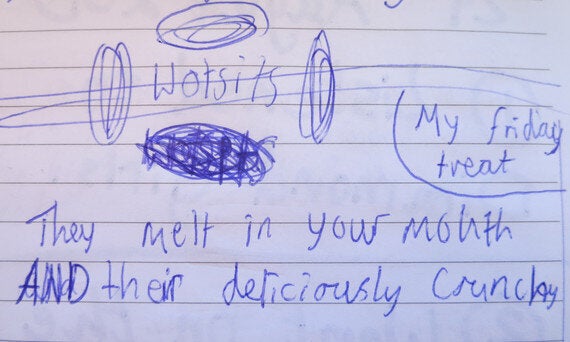 Wotsits
My friday
treat
They melt in your mouth
AND their deliciously Crunchy